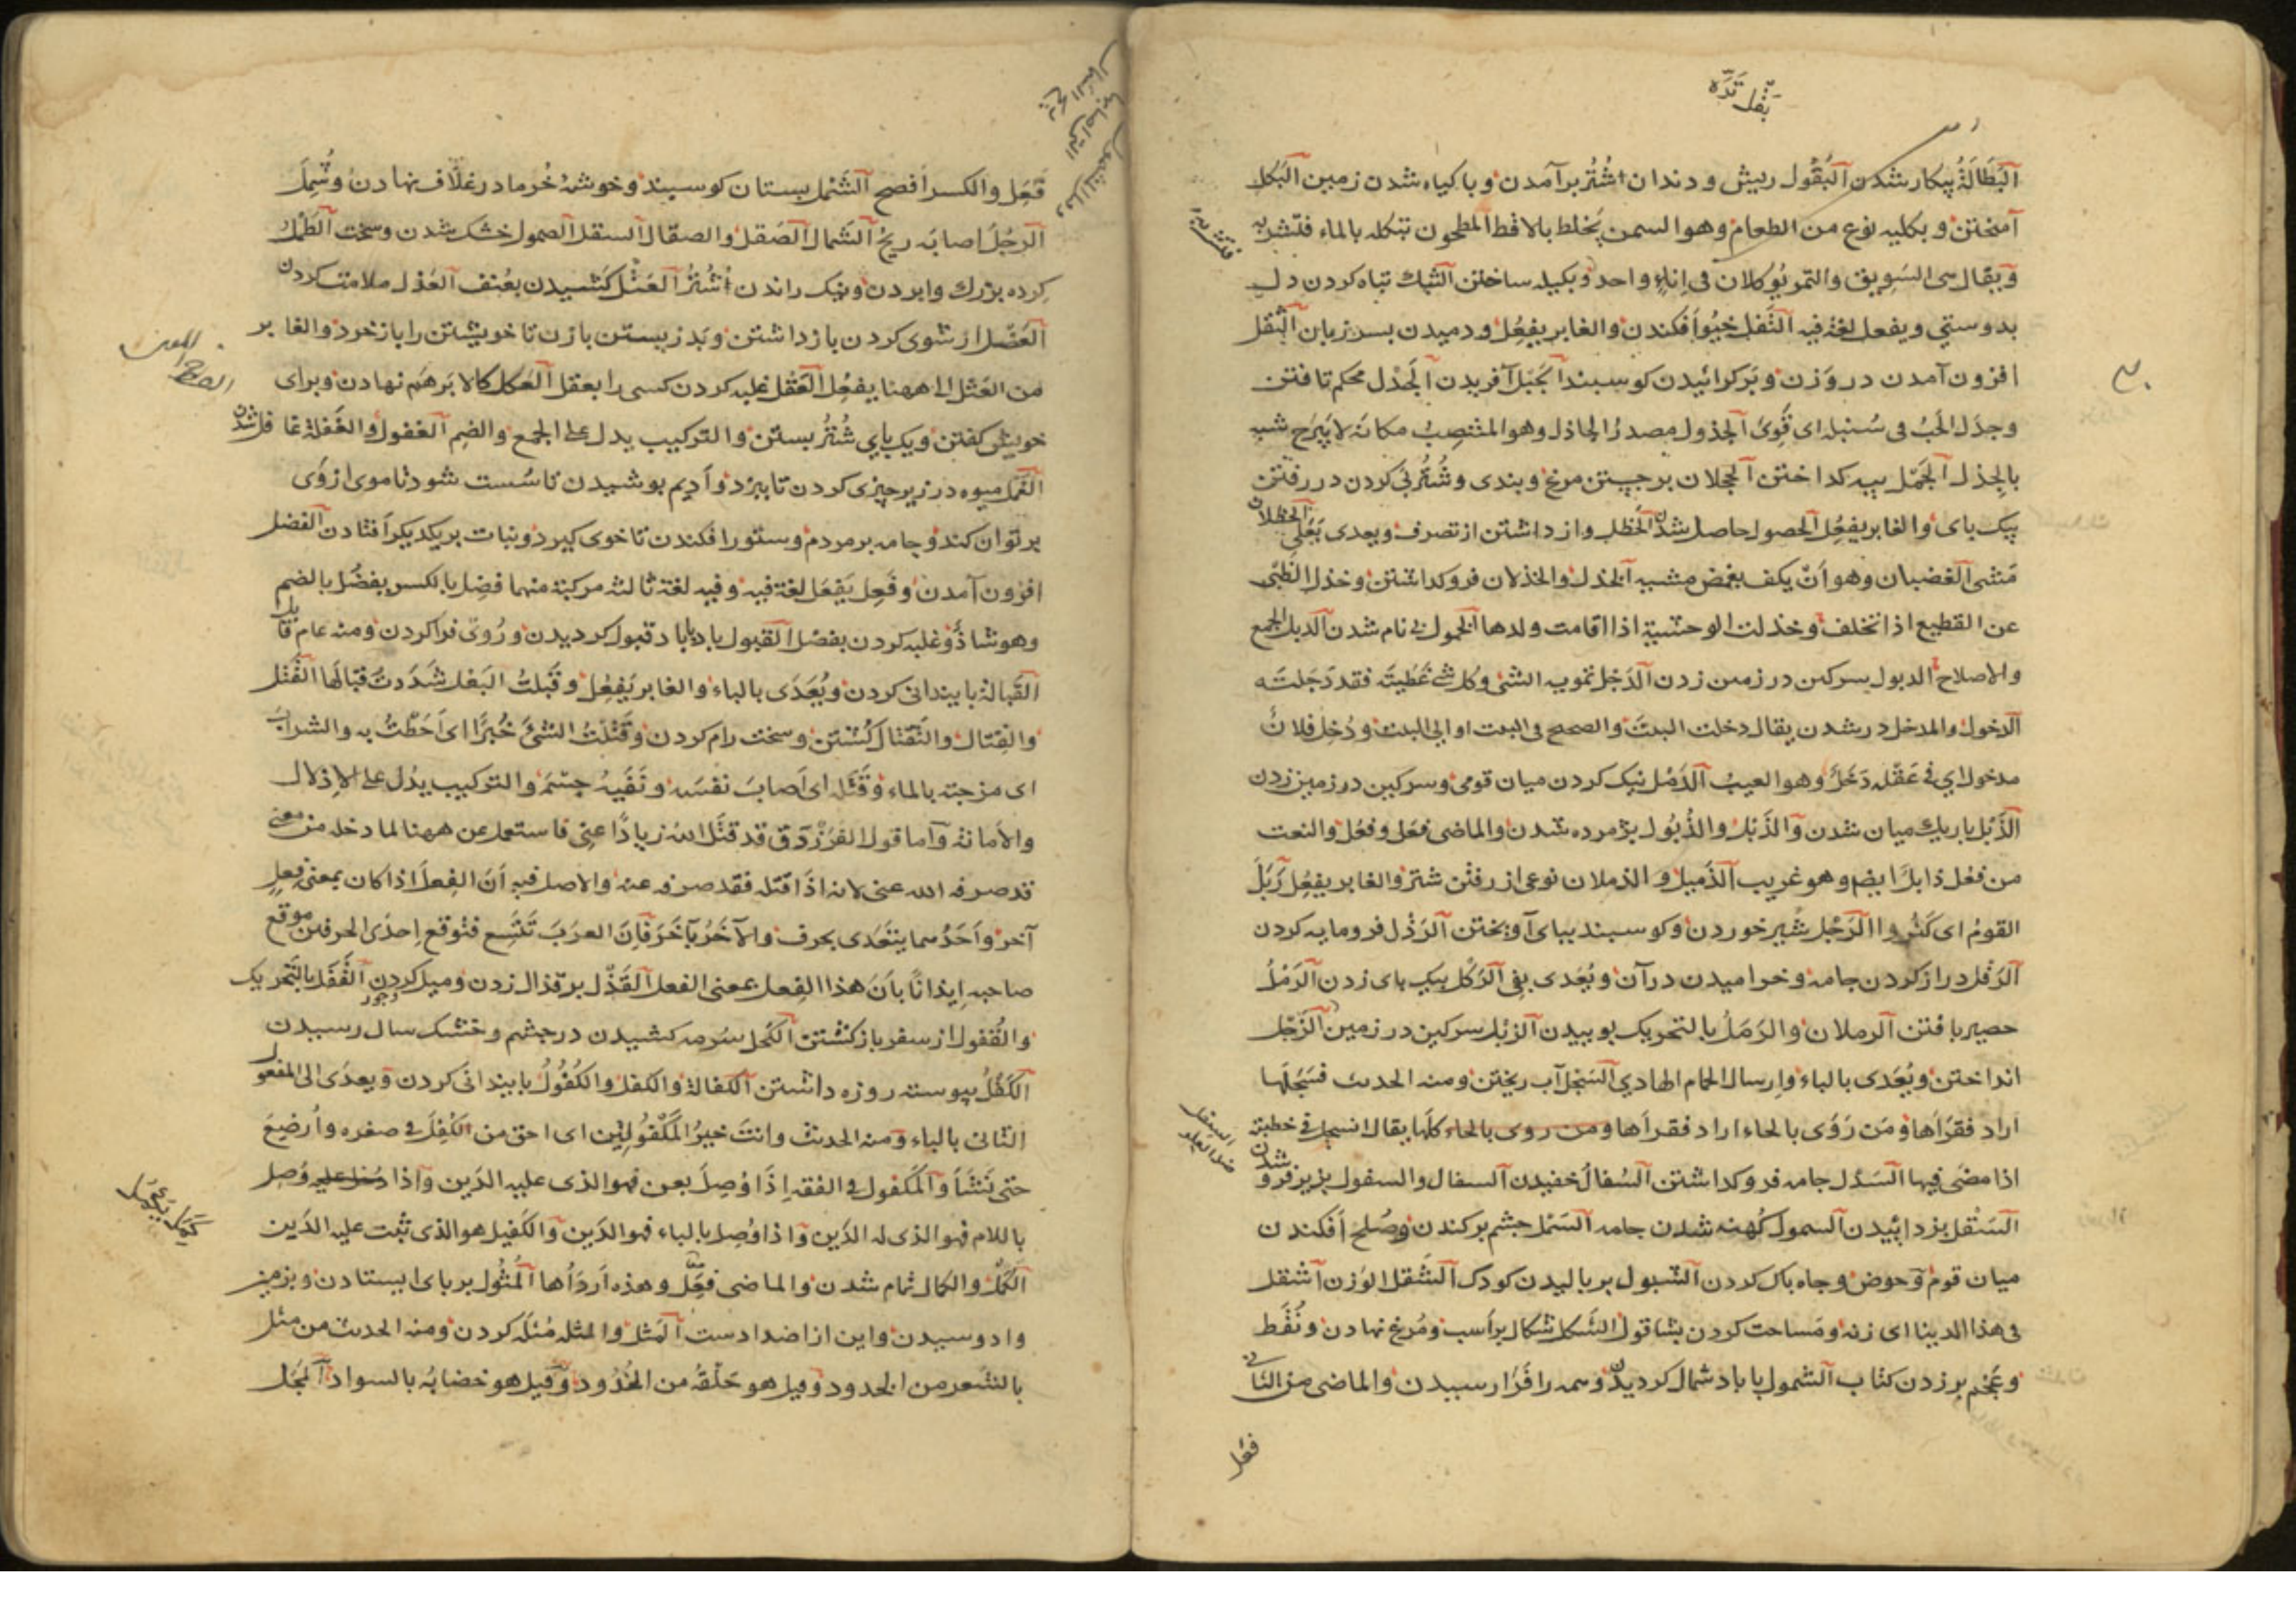 بَقْلَ تَرَّه
البَطَالَةُ بیکار شدن البُقُول ریش و دندان اُشْتُر برآمدن و با کیاه شدن زمین البَکْل
آمیختن و بکلیه نوع من الطعام وهو السمن یُخلط بالاقط المطحون تبکله بالماء فتشربه
ویقال هی السَوِیق والتمر یُوکلان فی اِناءٍ واحد وبکیله ساختن التَبْل تباه کردن دل
بدوستی ویفعل لغة فیه التَفْل خیُو افکندن والغابر یفعِل ودمیدن بسر زبان الثقل
افزون آمدن در وَزن وبَرکرائیدن کوسبند الجَبْل آفریدن الجَدْل محکم تافتن
وجدل الحَبُ فی سُنبله ای قَوِیَ الجذول مصدرُ الجاذل وهو المنتصِبُ مکانَه لا یَبرَح شبه
بالجِذل الجَمْل پیه کداختن الحجلان برجستن مرغ وبندی وشُتُر پی کردن در رفتن
بیک بای والغابر یفعِل الحصول حاصل شدن الحَظل وازداشتن از تصرف ویعدی بعَلی الحظلان
مَشی الغضبان وهو اَنْ یکف بعض مشیه الخذل والخذلان فروکداشتن وخذل الظبْی
عن القطیع اذا تخلف وخذلت الوحشیة اذا اقامت ولدها الخمول بی نام شدن الدبل الجمع
والاصلاح الدبول سرکین در زمین زدن الدَجْل تمویه الشئ وکل شئ غَطَیتَه فقد دَجَلتَه
الدخول والمدخل درشدن یقال دخلت البیتَ والصحیح فی البیت او الی البیت ودُخِل فلانٌ
مدخول ای فی عَقْله دَخَلٌ وهو العیبُ الدَمْل نیک کردن میان قومی وسرکین در زمین زدن
الذَبْل باریک میان شدن والذَبْل والذُبُول پژمرده شدن والماضی فعَل وفعُل والنعت
من فعُل ذابل ایضم وهو غریب الذَمیل والذملان نوعی از رفتن شتر والغابر یفعِل رَبَلَ
القومُ ای کَثُروا الرَجْل شیر خوردن وکوسبند ببای آویختن الرَذْل فرومایه کردن
الرَفْل دراز کردن جامه وخرامیدن در آن ویُعَدی بفی الرَکْل بیک بای زدن الرَمْلُ
حصیر بافتن الرملان والرَمَلُ بالتحریک بوییدن الزبْل سرکین در زمین الزَجْل
انداختن ویُعَدی بالباء وارسال الحمام الهادی السَجْل آب ریختن ومنه الحدیث فسَجَلَها
اراد فقرَاَها ومَن رَوَی بالحاء اراد فقراها ومن روی بالحاء کلها یقال انسجل فی خطبته
اذا مضی فیها السَدْل جامه فروکداشتن السُعال خفیدن السفال والسفول بزیر فرو شدن
السَمْل بزداییدن السمول کُهنه شدن جامه السَمْل چشم برکندن وصُلح افکندن
میان قوم وحوض وچاه باک کردن الشبول بربالیدن کودک الشَقْل الوَزن اشقل
فی هذا الدینار ای زنه ومَساحت کردن بشاقول الشَکل شکال بر اَسب ومُرغ نهادن ونُقَط
وعَجَم برزدن کتاب الشمول با باد شمال کردیدن وهمه را فَرَا رسیدن والماضی من الثانی
فَعَل
فَعِل والکسر افصح الشَمْل بستان کوسبند وخوشهٔ خُرما در غلاف نهادن وشُمِلَ
الرجُلُ اصابه ریحُ الشَمال الصَقل والصقال السقل الصمول خشک شدن وسخت الطَمْل
کرده بزرک وابردن ونیک راندن اُشْتُرُ العَتْل کشیدن بعُنف العَذل ملامت کردن
العَضْل از شوی کردن بازداشتن وبَد زیستن با زن تا خویشتن را باز خرد والغابر
من العَتل الی ههنا یفعِل العَقْل غلبه کردن کسی را بعقل العَکل کالا بَر هَم نهادن وبرای
خویش کفتن ویک بای شُتُر بستن والترکیب یدل علی الجمع والضم الغفول والغَفلة غافل شدن
الغَمْل میوه در زیر چیزی کردن تا ببزد واَدیم بوشیدن تا سُست شود تا موی از وَی
برتوان کند وجامه بر مردم وستور افکندن تا خوی کیرد ونبات بر یکدیکر افتادن الفضل
افزون آمدن وفَعِل یفعَل لغة فیه وفیه لغة ثالثه مرکبة منهما فضِل بالکسر یفضُل بالضم
وهو شاذٌ وغلبه کردن بفضل القبول با باد قبول کردیدن ورُوی فرا کردن ومنه عام قابل
القَبالة بایندانی کردن ویُعَدَی بالباء والغابر یَفعِل وقَبلتُ البَغل شَدَدتُ قبالَها القَتْل
والقِتال والتَقتال کُشتن وسخت رام کردن وقَتَلتُ الشئَ خُبرًا ای اَحَطْتُ به والشرابَ
ای مزجته بالماء وقَتَله ای اَصابَ نفسَه ونَفیهُ جسمَه والترکیب یدُل علی الاِذلال
والاماتة واما قول الفَرَزْدَق قد قتَلَ اللهُ زیادًا عنی فاستعمل عن ههنا لما دخله من معنی
قد صرفه الله عنی لانه اذا قتله فقد صرفه عنه والاصل فیه اَنَ الفِعلَ اذا کان بمعنی فعلٍ
آخر واَحَدُهما یتَعَدَی بحرف والآخَرُ بآخَرَ فَاِنَ العرَبَ تَتَسِع فتُوقع اِحدَی الحرفین موقع
صاحبه اِیذانًا باَنَ هذا الفِعل بمعنی الفعل القَذْل بر قذال زدن ومیل کردن القَفَل بالتحریک
والقُفول از سفر باز کشتن الکحل سُرمه کشیدن در چشم وخشک سال رسیدن
الکَفْلُ پیوسته روزه داشتن الکفالة والکفل والکُفُولُ بایندانی کردن ویعدَی الی المفعول
الثانی بالباء ومنه الحدیث وانتَ خیرُ المَکْفُولِین ای احق من الکفِلَ فی صغره واُرضِعَ
حتی نَشَأَ والمکفول فی الفقه اِذَا وُصِلَ بعن فهو الذی علیه الدَین واذا وُصِل
باللام فهو الذی له الدَین واذا وُصِل بالباء فهو الدَین والکفیل هو الذی ثبت علیه الدَین
الکَمْلُ والکمال تمام شدن والماضی فعُل وهذه اَردَأُها المُثُول بر بای ایستادن وبزمین
وادوسیدن واین از اضدادست المَثل والمثله مُثله کردن ومنه الحدیث من مثل
بالشَعر من الخدود وقیل هو حَلْقُه من الخُدُود وقیل هو خضابُه بالسواد المَجْل